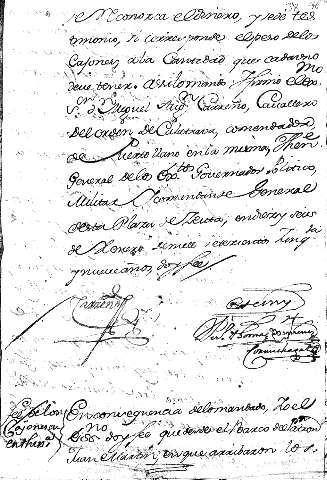 se reconosca el dinero, y se de tes
timonio, si corresponde el peso de los
Cajones, a la Cantidad que cada uno
deve tener. Assi lo mando, y firmo el Ex.mo
S.or D.n Miguel Aug.n Carreño, Cavallero
del orden de Calatrava, comendador
de Puerto llano en la misma, Then.te
General de los Ex.tos Governador Politico,
Militar, y Comandante General
de esta Plaza de Ceuta, en diez y seis
de Henero de mil setecientos Cinq.ta
y nueve años, doy fee
Carreño
Ante my
En consequencia de lo mandado, Yo el
Ess.no doy fee que desde el Barco del Patron
Juan en que arribaron los